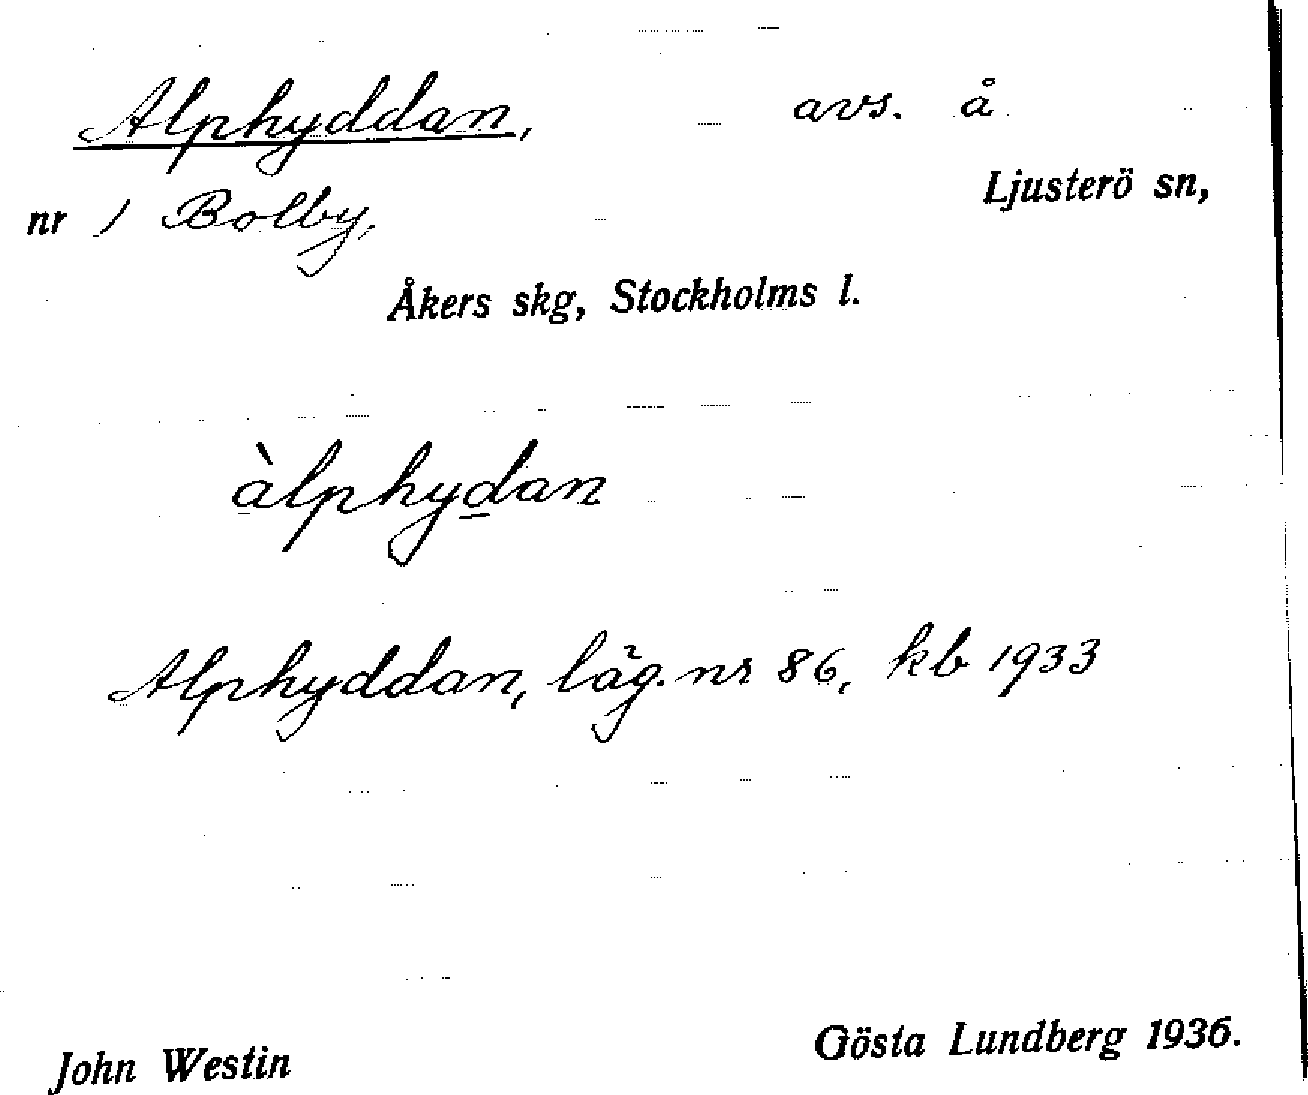 Alphyddan, avs. å
Ljusterö sn,
nr 1 Bolby,
Åkers skg, Stockholms l.
àlphydan
Alphyddan, läg. nr 86, kb 1933
John Westin
Gösta Lundberg 1936.